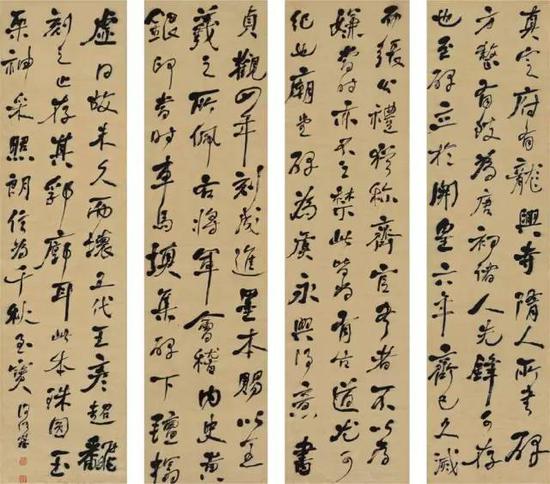 真定府有龍興寺隋人所書碑
方整有致為唐初諸人先鋒可存
也至碑立於開皇六年齊已久滅
而張公禮猶稱齊官書者不以為
嫌當時亦不之禁此皆尚有古道尤可
紀也廟堂碑為虞永興得意書
貞觀四年刻成進墨本賜以王
羲之所佩右將軍會稽內史黃
銀印當時車馬填集碑下氈搨
虛日故未久而壞五代王彥超翻
刻之止存其郛廓耳此本珠圓玉
栗神采照朗信為千秋至寶 何紹基